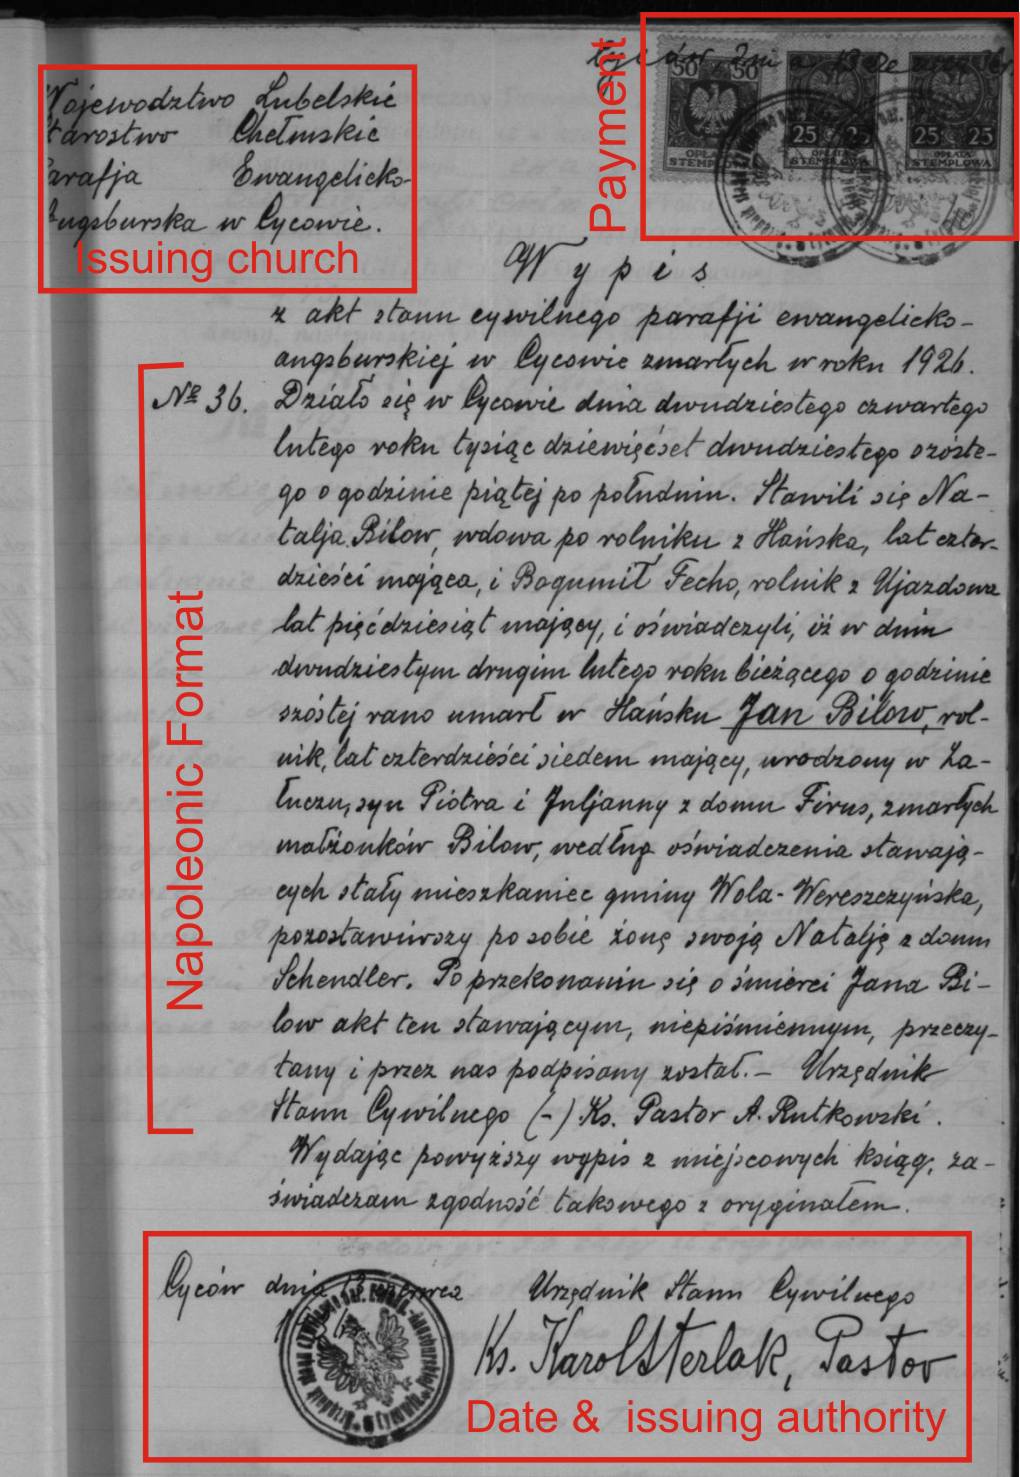 Wojewodztwo Lubelskie
Starostwo Chełmskie
Parafja Ewangelicko-
Augsburska w Cycowie.
Issuing church
Payment
50 50
25 25
25 25
OPŁATA
STEMPLOWA
OPŁATA
STEMPLOWA
OPŁATA
STEMPLOWA
Wypis
z akt stanu cywilnego parafji ewangelicko-
augsburskiej w Cycowie zmarłych w roku 1926.
№ 36. Działo się w Cycowie dnia dwudziestego czwartego
lutego roku tysiąc dziewięćset dwudziestego szóste-
go o godzinie piątej po południu. Stawili się Na-
talja Bilow, wdowa po rolniku z Hańska, lat czter-
dzieści mająca, i Bogumił Fecho, rolnik z Ujazdowa
lat pięćdziesiąt mający, i oświadczyli, iż w dniu
dwudziestym drugim lutego roku bieżącego o godzinie
szóstej rano umarł w Hańsku Jan Bilow, rol-
nik, lat czterdzieści siedem mający, urodzony w Za-
łuczu, syn Piotra i Juljanny z domu Firus, zmarłych
małżonków Bilow, według oświadczenia stawają-
cych stały mieszkaniec gminy Wola-Wereszczyńska,
pozostawiwszy po sobie żonę swoją Natalję z domu
Schendler. Po przekonaniu się o śmierci Jana Bi-
low akt ten stawającym, niepiśmiennym, przeczy-
tany i przez nas podpisany został. — Urzędnik
Stanu Cywilnego (-) Ks. Pastor A. Rutkowski.
Wydając powyższy wypis z miejscowych ksiąg, za-
świadczam zgodność takowego z oryginałem.
Napoleonic Format
Cyców dnia 13 czerwca Urzędnik Stanu Cywilnego
Ks. Karol Sterlak, Pastor
Date & issuing authority